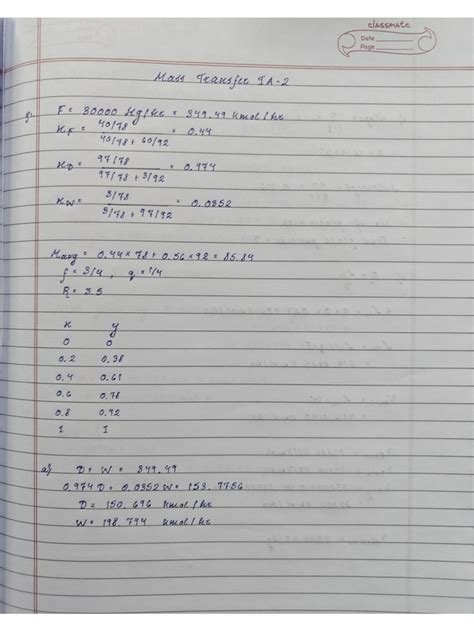 classmate
Date
Page
Mass Transfer IA-2
F = 30000 Kg/hr = 349.49 kmol/hr
xF = 40/78 / 40/78 + 60/92 = 0.44
xD = 97/78 / 97/78 + 3/92 = 0.974
xW = 3/78 / 3/78 + 97/92 = 0.0352
Mavg = 0.44 x 78 + 0.56 x 92 = 85.84
f = 3/4 , q = 1/4
R = 3.5
x y
0 0
0.2 0.38
0.4 0.61
0.6 0.78
0.8 0.92
1 1
a) D + W = 349.49
0.974 D + 0.0352 W = 153.7756
D = 150.696 kmol/hr
W = 198.794 kmol/hr